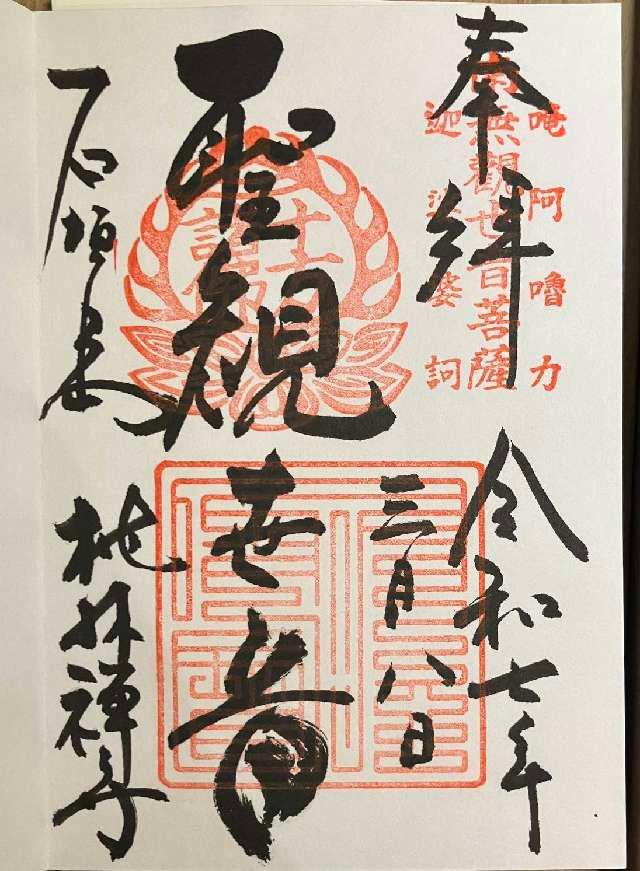 奉拝
唵阿嚕力
南無觀世音菩薩
迦娑婆訶
令和七年
三月八日
聖観世音
石垣島
桃林禅寺